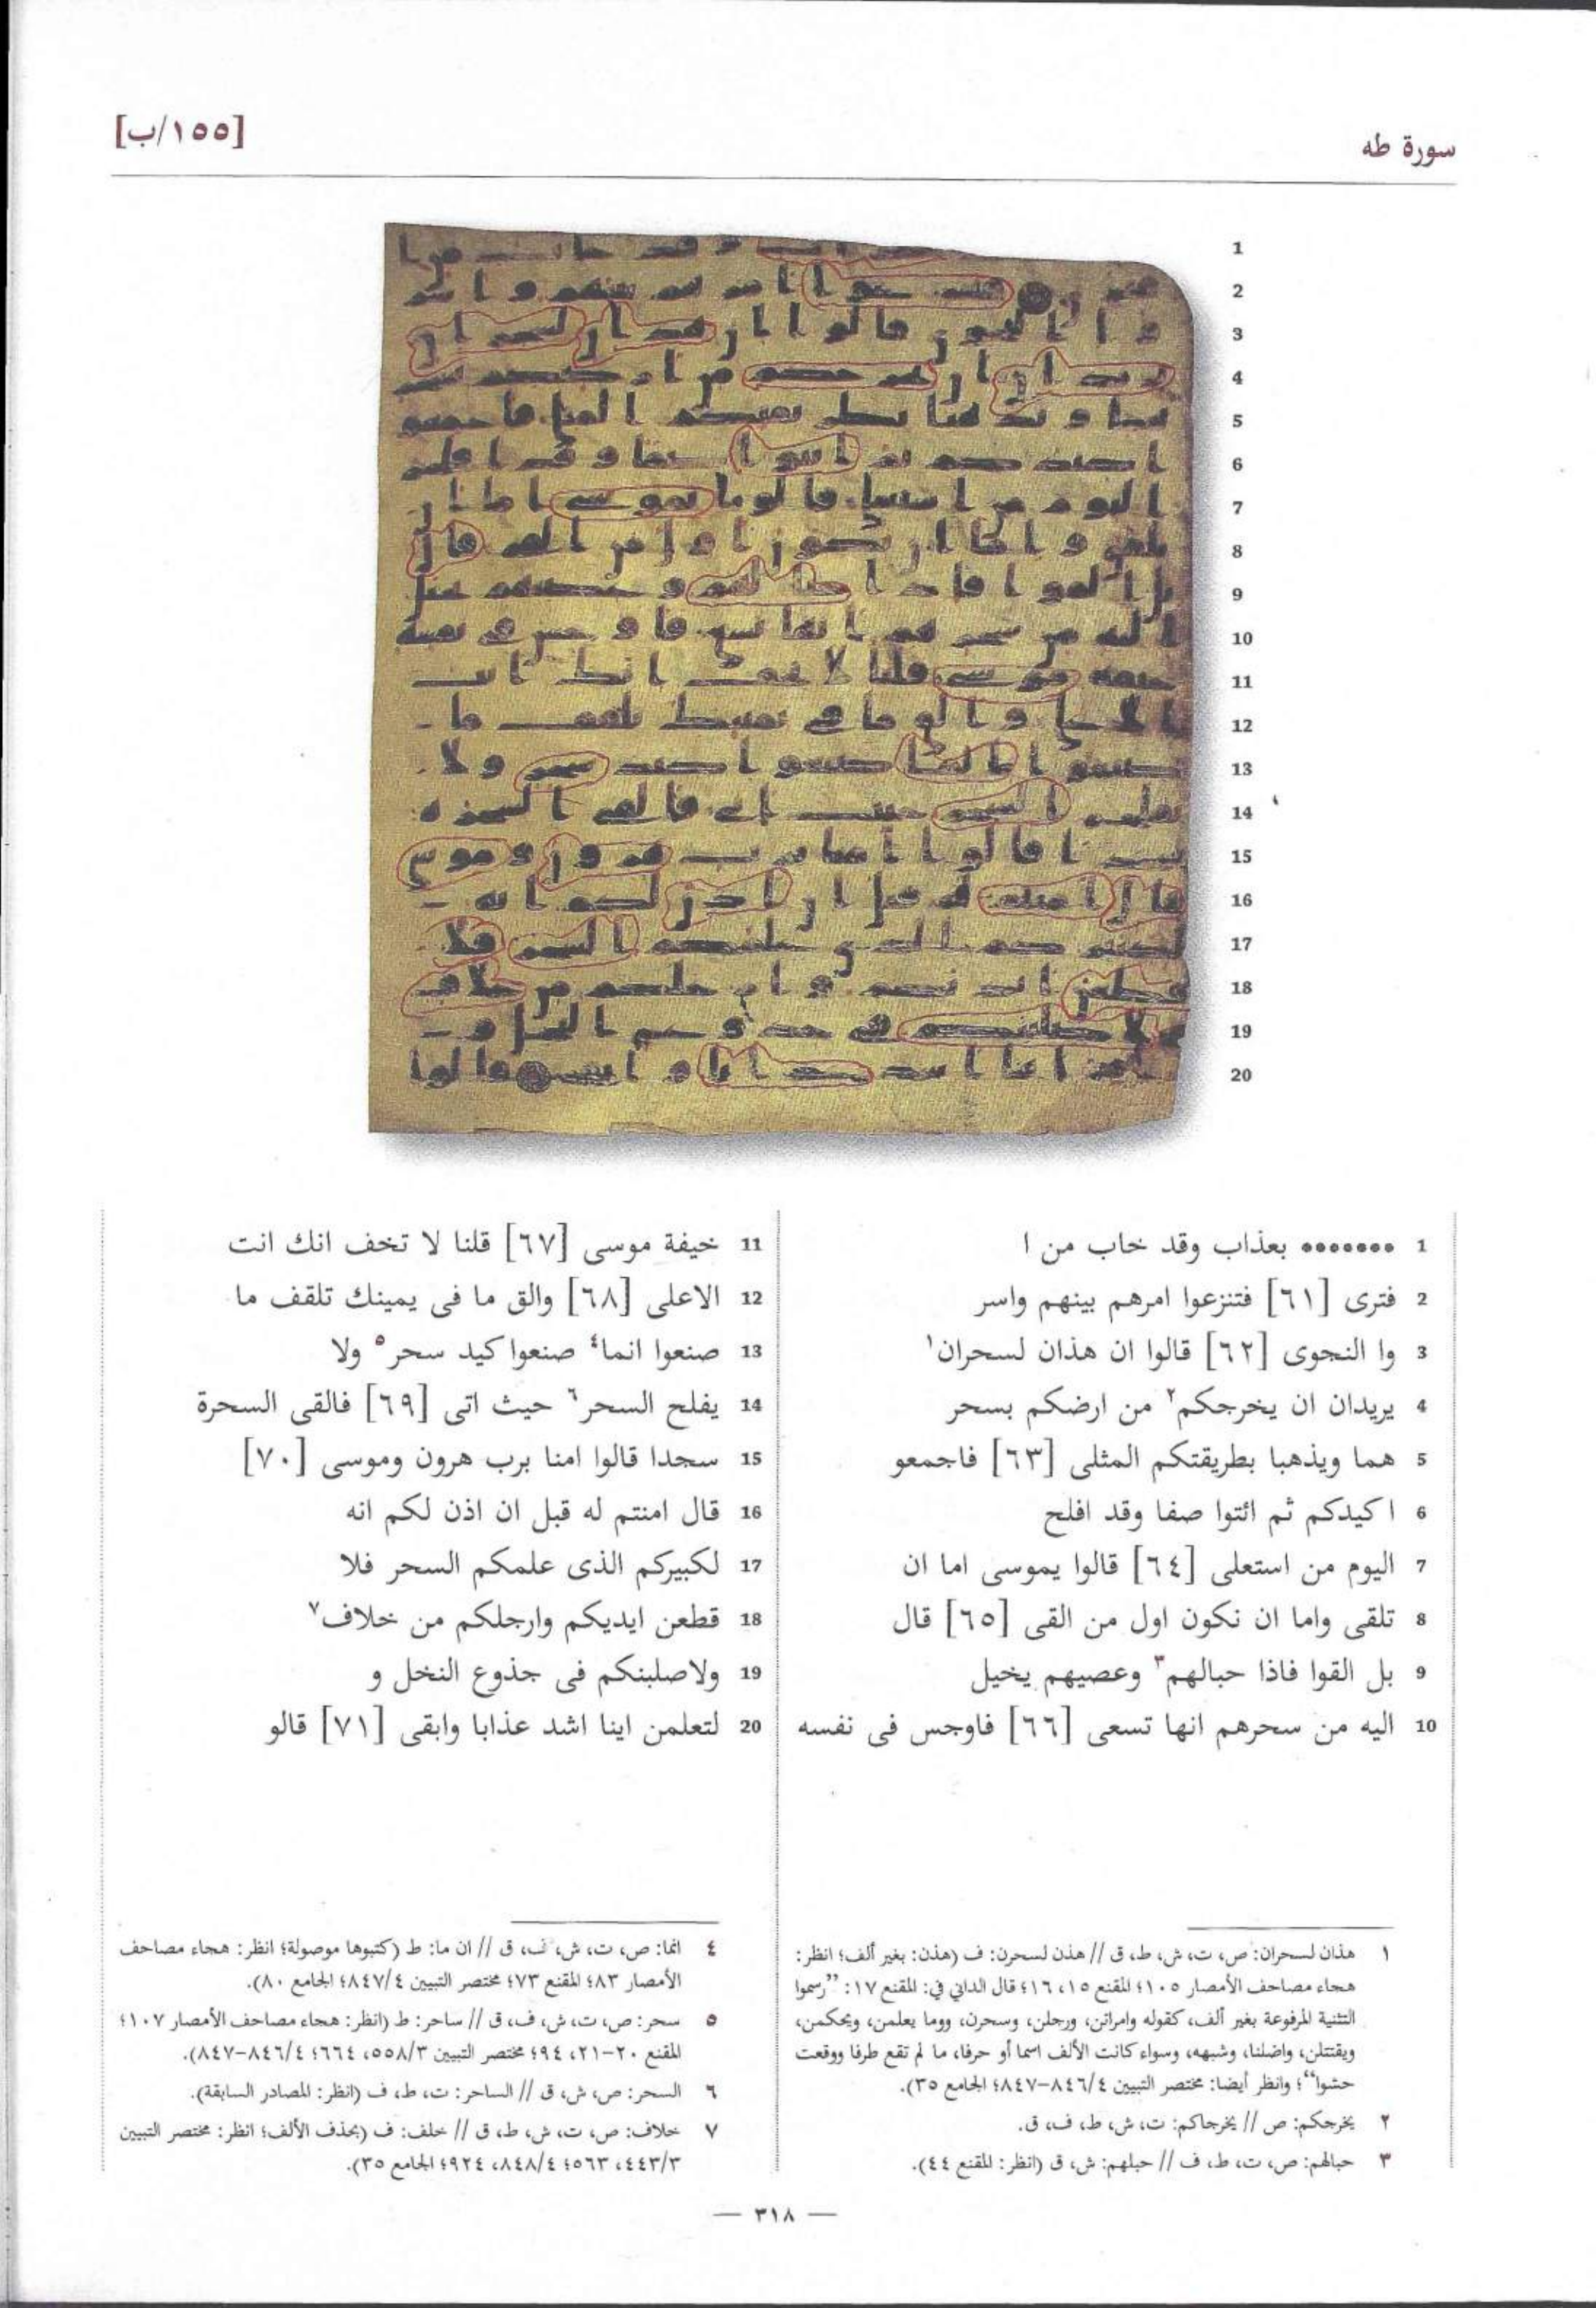 سورة طه
[١٥٥/ب]
1
2
3
4
5
6
7
8
9
10
11
12
13
14
15
16
17
18
19
20
1 ••••••• بعذاب وقد خاب من ا
2 فترى [٦١] فتنزعوا امرهم بينهم واسر
3 وا النجوى [٦٢] قالوا ان هذان لسحران١
4 يريدان ان يخرجكم٢ من ارضكم بسحر
5 هما ويذهبا بطريقتكم المثلى [٦٣] فاجمعو
6 ا كيدكم ثم ائتوا صفا وقد افلح
7 اليوم من استعلى [٦٤] قالوا يموسى اما ان
8 تلقى واما ان نكون اول من القى [٦٥] قال
9 بل القوا فاذا حبالهم٣ وعصيهم يخيل
10 اليه من سحرهم انها تسعى [٦٦] فاوجس فى نفسه
11 خيفة موسى [٦٧] قلنا لا تخف انك انت
12 الاعلى [٦٨] والق ما فى يمينك تلقف ما
13 صنعوا انما٤ صنعوا كيد سحر٥ ولا
14 يفلح السحر٦ حيث اتى [٦٩] فالقى السحرة
15 سجدا قالوا امنا برب هرون وموسى [٧٠]
16 قال امنتم له قبل ان اذن لكم انه
17 لكبيركم الذى علمكم السحر فلا
18 قطعن ايديكم وارجلكم من خلاف٧
19 ولاصلبنكم فى جذوع النخل و
20 لتعلمن اينا اشد عذابا وابقى [٧١] قالو
١ هذان لسحران: ص، ت، ش، ط، ق // هذن لسحرن: ف (هذن: بغير ألف؛ انظر:
هجاء مصاحف الأمصار ١٠٥؛ المقنع ١٥، ١٦؛ قال الداني في: المقنع ١٧: ”رسموا
التثنية المرفوعة بغير ألف، كقوله وامراتن، ورجلن، وسحرن، ووما يعلمن، ويحكمن،
ويقتتلن، واضلنا، وشبهه، وسواء كانت الألف اسما أو حرفا، ما لم تقع طرفا ووقعت
حشوا“؛ وانظر أيضا: مختصر التبيين ٨٤٦/٤–٨٤٧؛ الجامع ٣٥).
٢ يخرجكم: ص // يخرجاكم: ت، ش، ط، ف، ق.
٣ حبالهم: ص، ت، ط، ف // حبلهم: ش، ق (انظر: المقنع ٤٤).
٤ انما: ص، ت، ش، ف، ق // ان ما: ط (كتبوها موصولة؛ انظر: هجاء مصاحف
الأمصار ٨٣؛ المقنع ٧٣؛ مختصر التبيين ٨٤٧/٤؛ الجامع ٨٠).
٥ سحر: ص، ت، ش، ف، ق // ساحر: ط (انظر: هجاء مصاحف الأمصار ١٠٧؛
المقنع ٢٠–٢١، ٩٤؛ مختصر التبيين ٥٥٨/٣، ٦٦٤؛ ٨٤٦/٤–٨٤٧).
٦ السحر: ص، ش، ق // الساحر: ت، ط، ف (انظر: المصادر السابقة).
٧ خلاف: ص، ت، ش، ط، ق // خلف: ف (بحذف الألف؛ انظر: مختصر التبيين
٤٤٣/٣، ٥٦٣؛ ٨٤٨/٤، ٩٢٤؛ الجامع ٣٥).
— ٣١٨ —